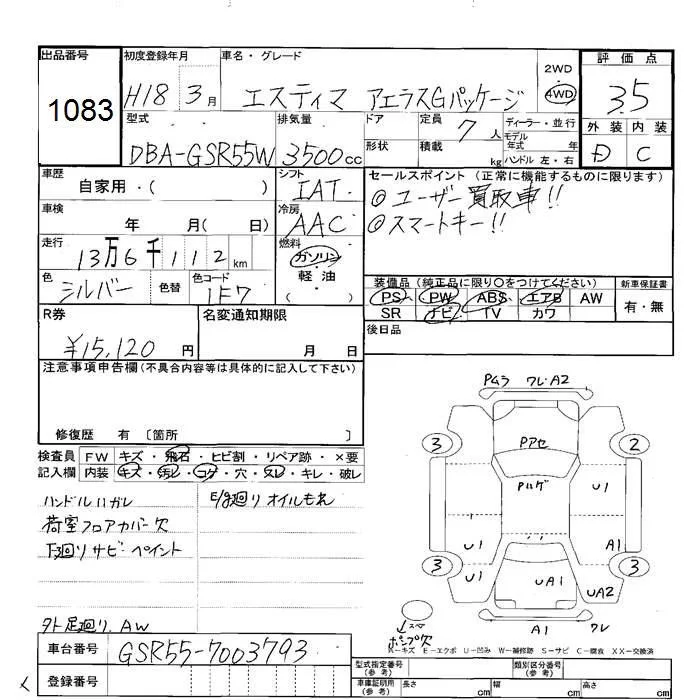 出品番号 初度登録年月 車名・グレード 2WD 評価点
1083 H18 3月 エスティマ アエラスGパッケージ 4WD 3.5
型式 排気量 ドア 定員 7人 ディーラー・並行 外装 内装
モデル年式 年
DBA-GSR55W 3500cc 形状 積載 kg ハンドル 左・右 D C
車歴 自家用・( ) シフト IAT セールスポイント (正常に機能するものに限ります)
◎ユーザー買取車!!
車検 年 月( 日) 冷房 AAC ◎スマートキー!!
走行 13万6千112km 燃料 ガソリン
軽油
( )
色 シルバー 色替 色コード 1F7 装備品 (純正品に限り○をつけてください) 新車保証書
PS PW ABS エアB AW 有・無
SR ナビ TV カワ
R券 名変通知期限 後日品
¥15,120円 月 日
注意事項申告欄(不具合内容等は具体的に記入して下さい)
修復歴 有 〔箇所 〕
検査員 FW キズ・飛石・ヒビ割・リペア跡・×要
記入欄 内装 キズ・汚レ・コゲ・穴・スレ・キレ・破レ
ハンドルハガレ E/g廻りオイルもれ
荷室フロアカバー欠
下廻りサビ・ペイント
タト足廻り、AW
Pムラ ワレ・A2
3 Pアセ 2
Pハゲ U1
U1 A1
3 U1 UA1 UA2 3
A1 ワレ
K－キズ E－エクボ U－凹み W－補修跡 S－サビ C－腐食 XX－交換済
車台番号 GSR55-7003793
登録番号
型式指定番号(参考) 類別区分番号(参考)
車庫証明用(参考) 長さ cm 幅 cm 高さ cm